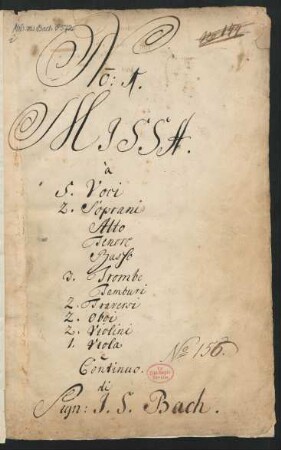 No: 1.
MISSA.
à
5. Voci
2. Soprani
Alto
Tenore
Basso
3. Trombe
Tamburi
2. Traversi
2. Oboi
2. Violini
1. Viola
e
Continuo.
No 156.
di
Sign: J. S. Bach.